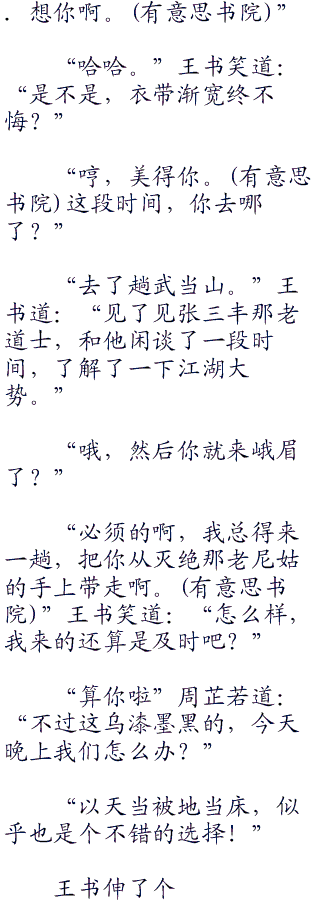 ．想你啊。(有意思书院)”
“哈哈。”王书笑道：
“是不是，衣带渐宽终不
悔？”
“哼，美得你。(有意思
书院)这段时间，你去哪
了？”
“去了趟武当山。”王
书道：“见了见张三丰那老
道士，和他闲谈了一段时
间，了解了一下江湖大
势。”
“哦，然后你就来峨眉
了？”
“必须的啊，我总得来
一趟，把你从灭绝那老尼姑
的手上带走啊。(有意思书
院)”王书笑道：“怎么样，
我来的还算是及时吧？”
“算你啦”周芷若道：
“不过这乌漆墨黑的，今天
晚上我们怎么办？”
“以天当被地当床，似
乎也是个不错的选择！”
王书伸了个